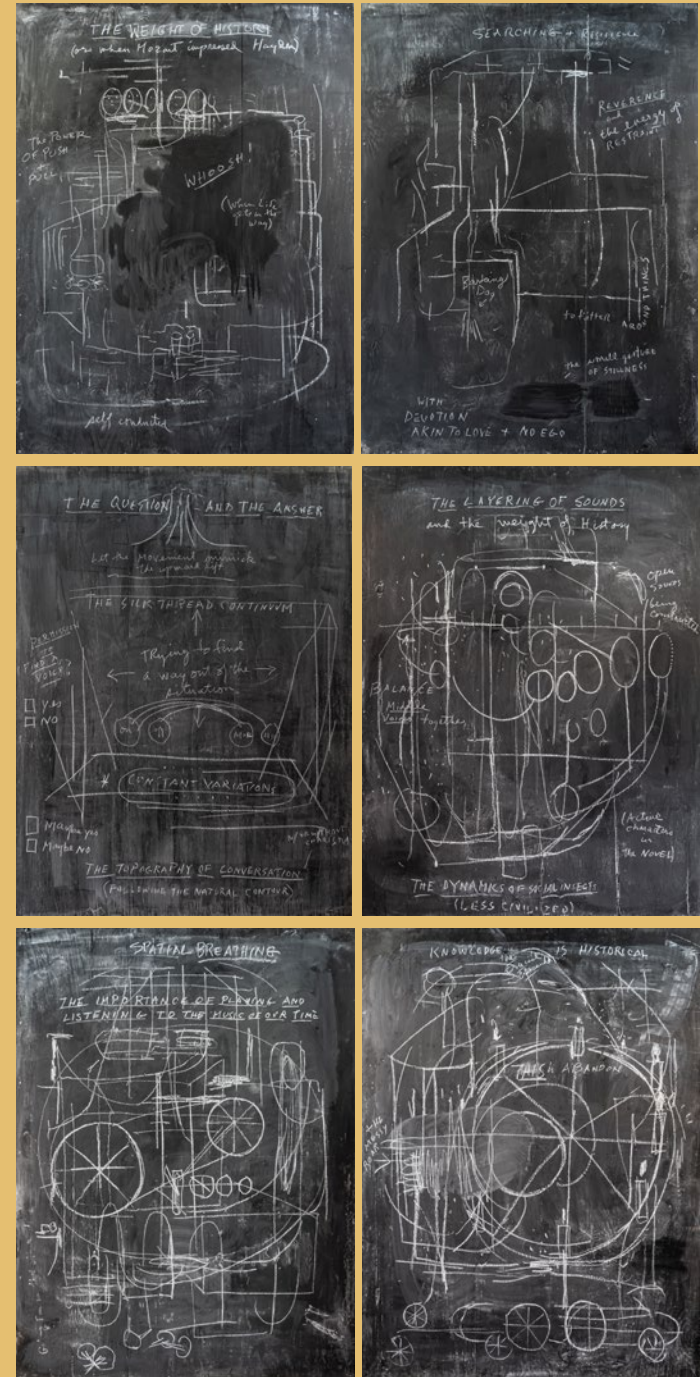 THE WEIGHT OF HISTORY
(or when Mozart impressed Hayden)
The POWER
OF PUSH
PULL
WHOOSH!
(When Life
gets in the
way)
self conductor
SEARCHING +
REVERENCE
and
the Energy of
RESTRAINT
Barking
Dog
to Potter
AROUND THINGS
the small gesture
OF STILLNESS
WITH
DEVOTION
AKIN TO LOVE + NO EGO
THE QUESTION AND THE ANSWER
Let the movement
the upward lift
THE SILK THREAD CONTINUUM
PERMISSION
TO
FIND A
VOICE?
YES
NO
Trying to find
a way out of the
situation
* CONSTANT VARIATIONS
Maybe yes
Maybe NO
THE TOPOGRAPHY OF CONVERSATION
(FOLLOWING THE NATURAL CONTOUR)
THE LAYERING OF SOUNDS
and the weight of History
OPEN
SOUNDS
being
BALANCE
Middle
Voices together
(Active
characters
in
the NOVEL)
THE DYNAMICS OF SOCIAL INSECTS
(LESS CIVILIZED)
SPATIAL BREATHING
THE IMPORTANCE OF PLAYING AND
LISTENING TO THE MUSIC OF OUR TIME
KNOWLEDGE IS HISTORICAL
ABANDON